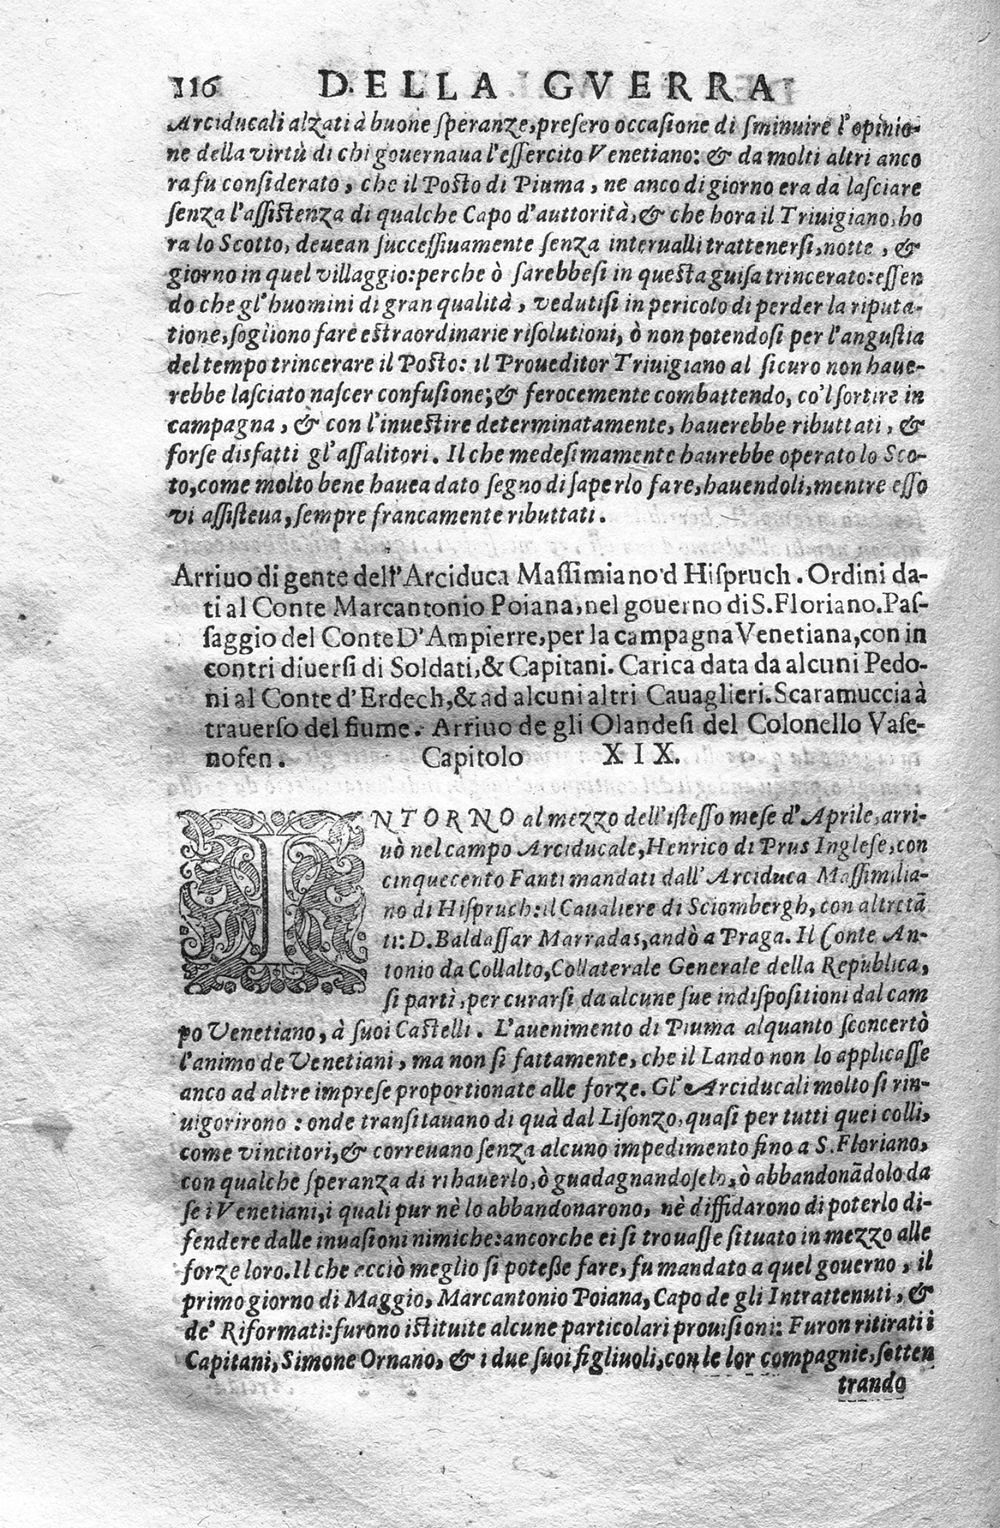 116 DELLA GVERRA
Arciducali alzati à buone ſperanze, preſero occaſione di ſminuire l'opinio-
ne della virtù di chi gouernaua l'eſſercito Venetiano: & da molti altri anco
ra fu conſiderato, che il Poſto di Piuma, ne anco di giorno era da laſciare
ſenza l'aſſiſtenza di qualche Capo d'auttorità, & che hora il Triuigiano, ho
ra lo Scotto, deuean ſucceſſiuamente ſenza interualli trattenerſi, notte, &
giorno in quel villaggio: perche ò ſarebbeſi in queſta guiſa trincerato: eſſen
do che gl'huomini di gran qualità, vedutiſi in pericolo di perder la riputa-
tione, ſogliono fare eſtraordinarie riſolutioni, ò non potendoſi per l'anguſtia
del tempo trincerare il Poſto: il Proueditor Triuigiano al ſicuro non haue-
rebbe laſciato naſcer confuſione; & ferocemente combattendo, co'l ſortire in
campagna, & con l'inueſtire determinatamente, hauerebbe ributtati, &
forſe disfatti gl'aſſalitori. Il che medeſimamente haurebbe operato lo Sco-
to, come molto bene hauea dato ſegno di ſaperlo fare, hauendoli, mentre eſſo
vi aſſiſteua, ſempre francamente ributtati.
Arriuo di gente dell'Arciduca Maſſimiano d Hiſpruch. Ordini da-
ti al Conte Marcantonio Poiana, nel gouerno di S. Floriano. Paſ-
ſaggio del Conte D'Ampierre, per la campagna Venetiana, con in
contri diuerſi di Soldati, & Capitani. Carica data da alcuni Pedo-
ni al Conte d'Erdech, & ad alcuni altri Cauaglieri. Scaramuccia à
trauerſo del fiume. Arriuo de gli Olandeſi del Colonello Vaſe-
nofen. Capitolo XIX.
INTORNO al mezzo dell'iſteſſo meſe d'Aprile, arri-
uò nel campo Arciducale, Henrico di Prus Ingleſe, con
cinquecento Fanti mandati dall'Arciduca Maſſimilia-
no di Hiſpruch: il Caualiere di Sciombergh, con altretã
ti: D. Baldaſſar Marradas, andò a Praga. Il Conte An-
tonio da Collalto, Collaterale Generale della Republica,
ſi partì, per curarſi da alcune ſue indiſpoſitioni dal cam
po Venetiano, à ſuoi Caſtelli. L'auenimento di Piuma alquanto ſconcertò
l'animo de Venetiani, ma non ſi fattamente, che il Lando non lo applicaſſe
anco ad altre impreſe proportionate alle forze. Gl'Arciducali molto ſi rin-
uigorirono: onde tranſitauano di quà dal Liſonzo, quaſi per tutti quei colli,
come vincitori, & correuano ſenza alcuno impedimento fino a S. Floriano,
con qualche ſperanza di rihauerlo, ò guadagnandoſelo, ò abbandonãdolo da
ſe i Venetiani, i quali pur nè lo abbandonarono, nè diffidarono di poterlo di-
fendere dalle inuaſioni nimiche: ancorche ei ſi trouaſſe ſituato in mezzo alle
forze loro. Il che acciò meglio ſi poteße fare, fu mandato a quel gouerno, il
primo giorno di Maggio, Marcantonio Poiana, Capo de gli Intrattenuti, &
de' Riformati: furono iſtituite alcune particolari prouiſioni: Furon ritirati i
Capitani, Simone Ornano, & i due ſuoi figliuoli, con le lor compagnie, ſotten
trando